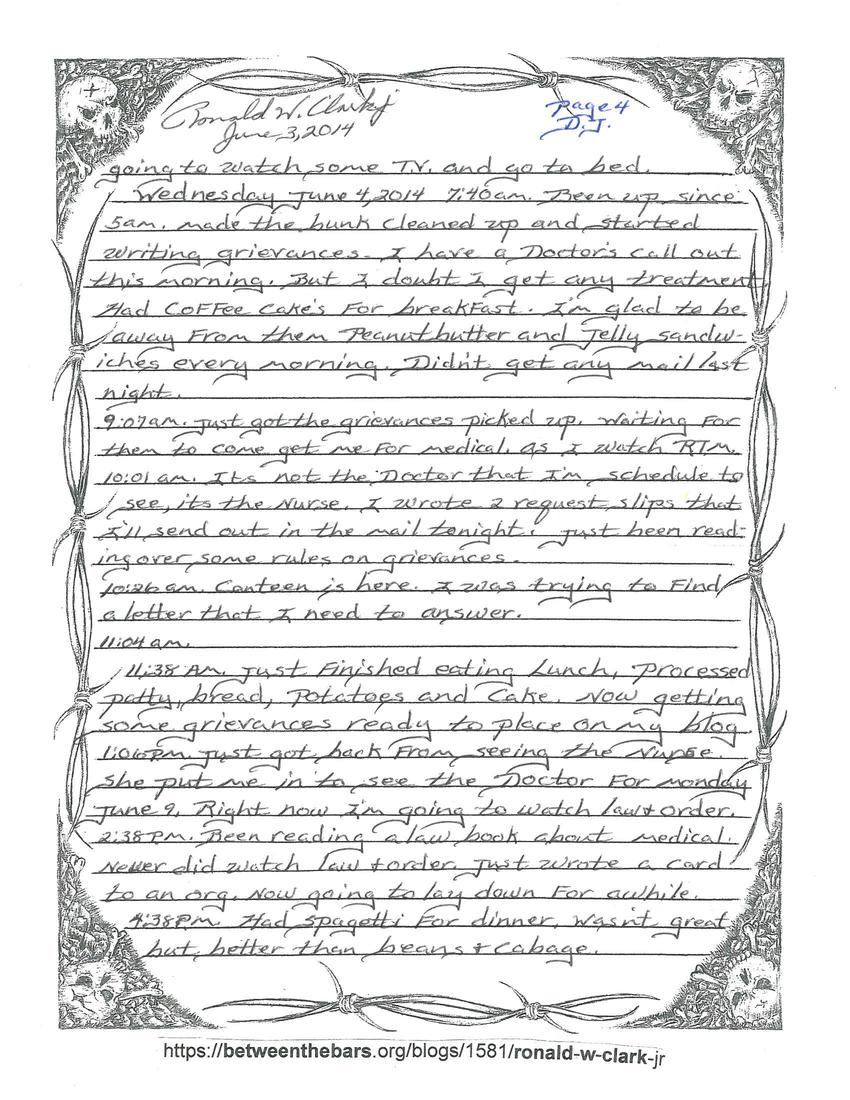 Ronald W. Clark jr
June, 3, 2014
Page 4
D.J.
going to watch some T.V. and go to bed.
Wednesday June 4, 2014 7:40am. Been up since
5am. made the bunk cleaned up and started
writing grievances. I have a Doctor's call out
this morning. But I doubt I get any treatment
Had Coffee Cake's For breakfast. I'm glad to be
away From them Peanutbutter and Jelly sandw-
iches every morning. Didn't get any mail last
night.
9:07am. Just got the grievances picked up. Waiting For
them to come get me For medical. as I watch RTM.
10:01 am. Its not the Doctor that I'm schedule to
see, its the Nurse. I wrote 2 request slips that
I'll send out in the mail tonight. Just been read-
ing over some rules on grievances.
10:26 am. Canteen is here. I was trying to Find
a letter that I need to answer.
11:04 am.
11:38 AM. Just Finished eating Lunch, Processed
patty, bread, Potatoes and Cake. Now getting
some grievances ready to place on my blog
1:06PM. Just got back From seeing the Nurse.
She put me in to see the Doctor For monday
June 9, Right now I'm going to watch law & order.
2:38 P.M. Been reading a law book about medical.
Never did watch law & order. Just wrote a card
to an org. Now going to lay down For awhile.
4:38PM. Had Spagetti For dinner, Wasn't great
but better than beans & Cabage.
https://betweenthebars.org/blogs/1581/ronald-w-clark-jr